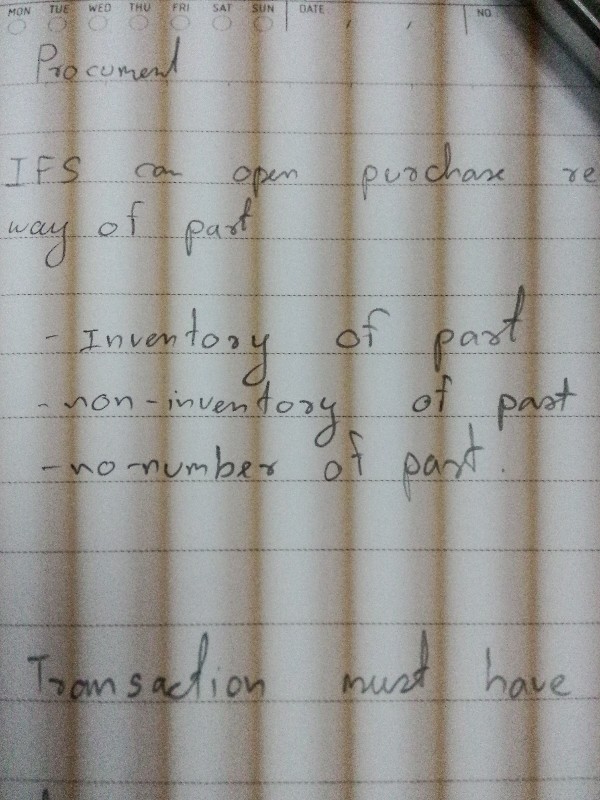 MON TUE WED THU FRI SAT SUN DATE NO
Procument
IFS can open purchase re
way of part
- Inventory of part
- non-inventory of part
- no-number of part.
Transaction must have